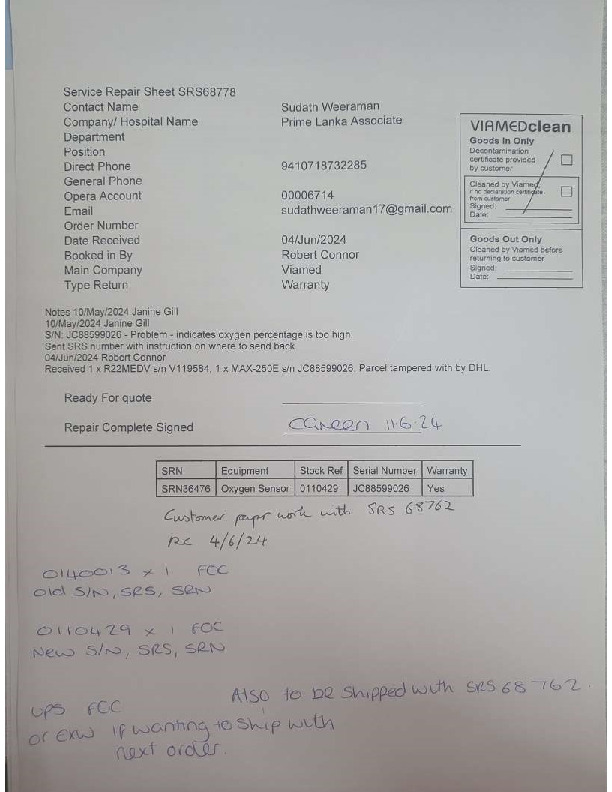 Service Repair Sheet SRS68778
Contact Name Sudath Weeraman
Company/ Hospital Name Prime Lanka Associate
Department
Position
Direct Phone 9410718732285
General Phone
Opera Account 00006714
Email sudathweeraman17@gmail.com
Order Number
Date Received 04/Jun/2024
Booked in By Robert Connor
Main Company Viamed
Type Return Warranty
VIAMEDclean
Goods In Only
Decontamination
certificate provided
by customer
Cleaned by Viamed
if no declaration certificate
from customer
Signed:
Date:
Goods Out Only
Cleaned by Viamed before
returning to customer
Signed:
Date:
Notes 10/May/2024 Janine Gill
10/May/2024 Janine Gill
S/N: JC88599026 - Problem - indicates oxygen percentage is too high
Sent SRS number with instruction on where to send back.
04/Jun/2024 Robert Connor
Received 1 x R22MEDV s/n V119584, 1 x MAX-250E s/n JC88599026. Parcel tampered with by DHL.
Ready For quote
Repair Complete Signed CGreen 11.6.24
SRN Equipment Stock Ref Serial Number Warranty
SRN36476 Oxygen Sensor 0110429 JC88599026 Yes
Customer paper work with SRS 68762
RC 4/6/24
0140013 x 1 FOC
Old S/N, SRS, SRN
0110429 x 1 FOC
New S/N, SRS, SRN
Also to be shipped with SRS 68762.
UPS FOC
or EXW if wanting to ship with
next order.